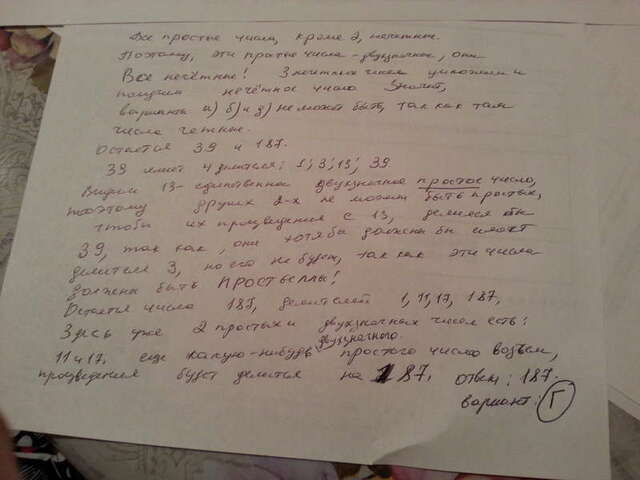 Все простые числа, кроме 2, нечетные.
Поэтому, эти простые числа - двузначные, они
Все нечётные! 3 нечетных числа умножим и
получим нечётное число Значит,
варианта а) б) и д) не может быть, так как там
числа четные.
Остается 39 и 187.
39 имеет 4 делителя; 1; 3; 13; 39.
Видим 13- единственное двухзначное простое число,
поэтому других 2-х не может быть простых,
чтобы их произведения с 13, делился бы
39, так как, они хотя бы должны бы имеют
делителя 3, но его не будет, так как эти числа
должны быть простыеллы!
Остается число 187, делителей 1, 11, 17, 187,
Здесь уже 2 простых и двухзначных чисел есть:
11 и 17, еще какую-нибудь двухзначного простого число возьем,
произведения будет делится на 187. ответ: 187.
вариант: Г